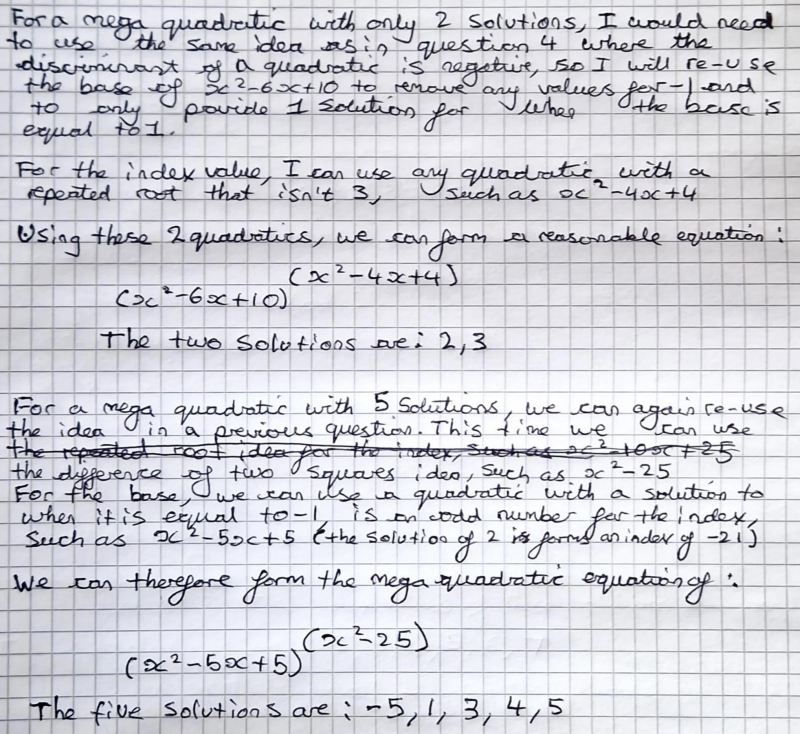 For a mega quadratic with only 2 solutions, I would need
to use the same idea as in question 4 where the
discriminant of a quadratic is negative, so I will re-use
the base of x²-6x+10 to remove any values for -1 and
to only provide 1 solution for when the base is
equal to 1.
For the index value, I can use any quadratic with a
repeated root that isn't 3, such as x²-4x+4
Using these 2 quadratics, we can form a reasonable equation:
(x²-6x+10)^(x²-4x+4)
The two solutions are: 2,3
For a mega quadratic with 5 solutions, we can again re-use
the idea in a previous question. This time we can use
the repeated root idea for the index, such as x²-10x+25
the difference of two squares idea, such as x²-25
For the base, we can use a quadratic with a solution to
when it is equal to -1, is an odd number for the index,
such as x²-5x+5 (the solution of 2 is forms an index of -21)
We can therefore form the mega quadratic equation of:
(x²-5x+5)^(x²-25)
The five solutions are: -5, 1, 3, 4, 5